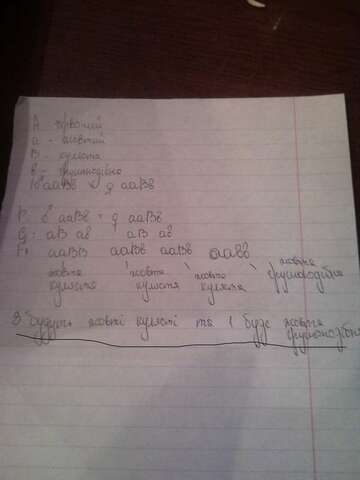 А - червоний
а - жовтий
В - куляста
в - грушоподібна
♂ ааВв × ♀ ааВв
Р: ♂ ааВв × ♀ ааВв
G: аВ ав аВ ав
F₁ ааВВ ааВв ааВв аавв
жовта жовта жовта жовта
куляста куляста куляста грушоподібна
3 будуть жовті кулясті та 1 буде жовта
грушоподібна